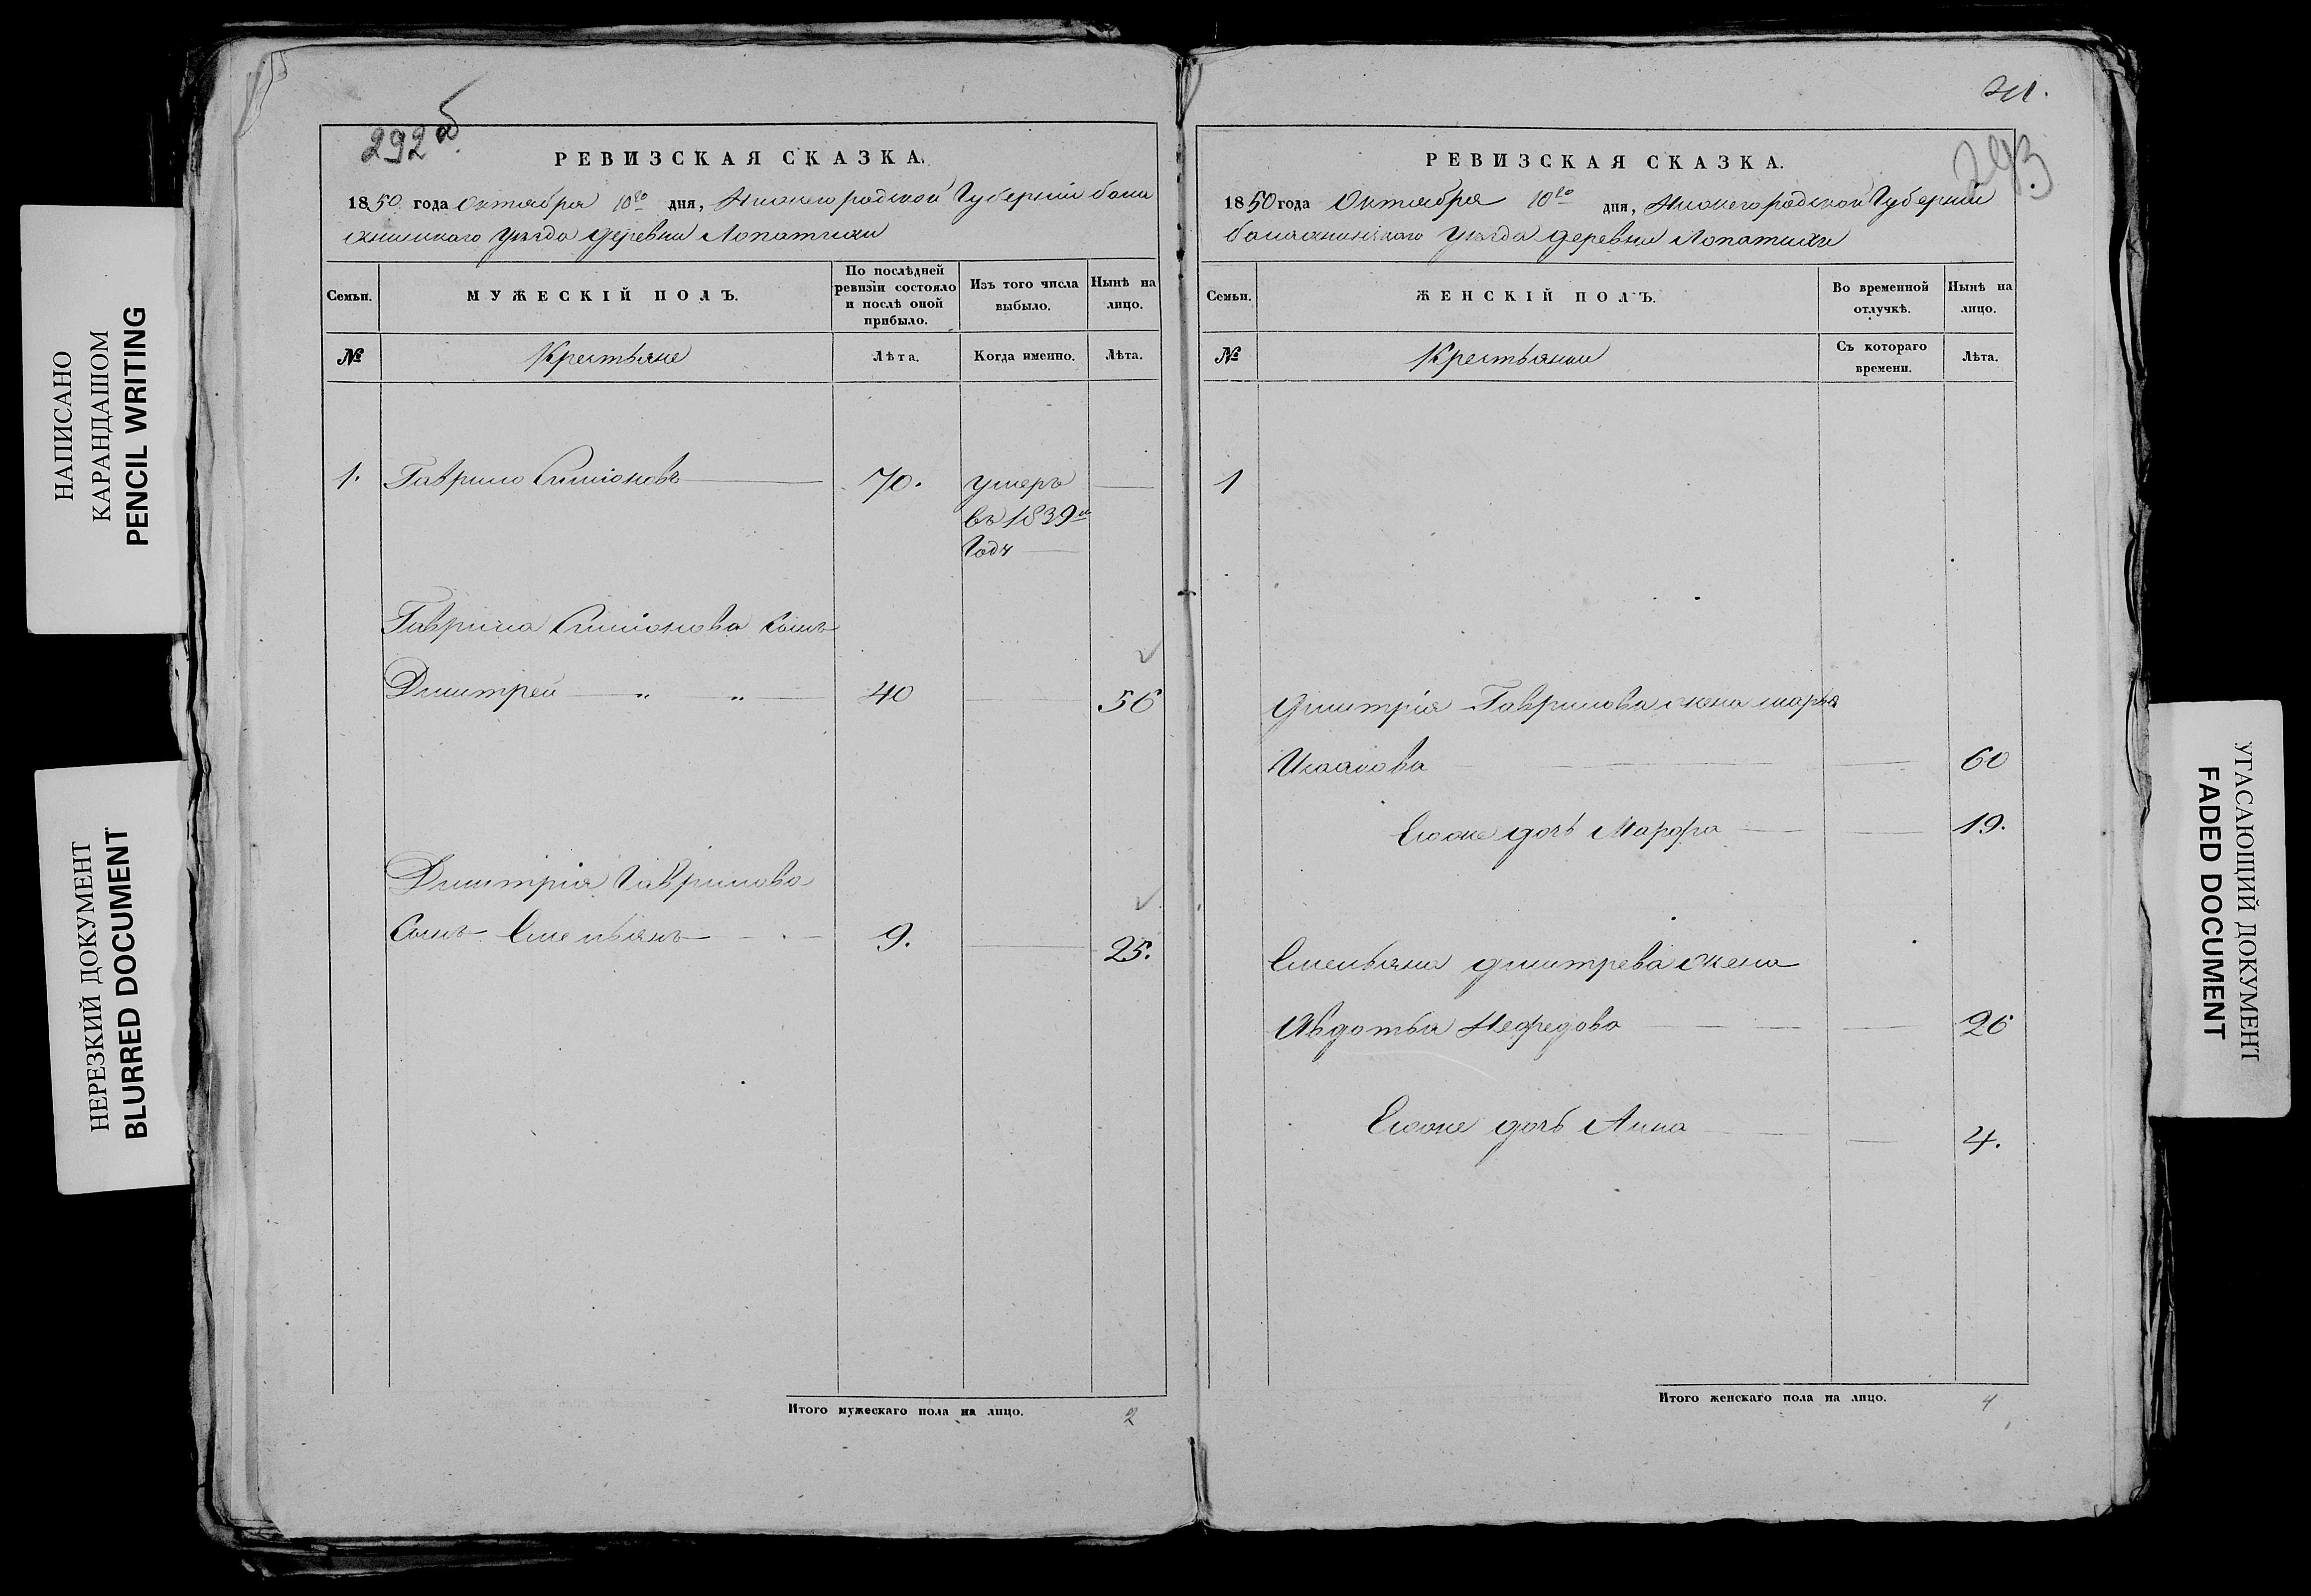 НАПИСАНО
КАРАНДАШОМ
PENCIL WRITING
НЕРЕЗКИЙ ДОКУМЕНТ
BLURRED DOCUMENT
292 об
РЕВИЗСКАЯ СКАЗКА.
1850 года Октября 10го дня, Нижегородской Губернiи бала
хнинскаго уѣзда деревни Лопатихи
Семьи.
МУЖЕСКІЙ ПОЛЪ.
По послѣдней
ревизіи состояло
и послѣ оной
прибыло.
Изъ того числа
выбыло.
Нынѣ на
лицо.
№
Крестьяне
Лѣта.
Когда именно.
Лѣта.
1. Гаврило Симіоновъ 70. умеръ
въ 1839м
Годѵ
Гаврила Симіонова сынъ
Дмитрей „ „ 40 56
Дмитрія Гаврилова
Сынъ Емельянъ 9. 25.
Итого мужескаго пола на лицо. 2
293
РЕВИЗСКАЯ СКАЗКА.
1850 года Октября 10го дня, Нижегородской Губерніи
балахнинскаго уѣзда деревни Лопатихи
Семьи.
ЖЕНСКІЙ ПОЛЪ.
Во временной
отлучкѣ.
Нынѣ на
лицо.
№
Крестьянки
Съ котораго
времени.
Лѣта.
1
Дмитрія Гаврилова жена марья
Исаакова 60
Евоже дочь Марфа 19.
Емельяна дмитрева жена
Авдотья Нефедова 26
Евоже дочь Анна 4.
Итого женскаго пола на лицо. 4
УГАСАЮЩИЙ ДОКУМЕНТ
FADED DOCUMENT